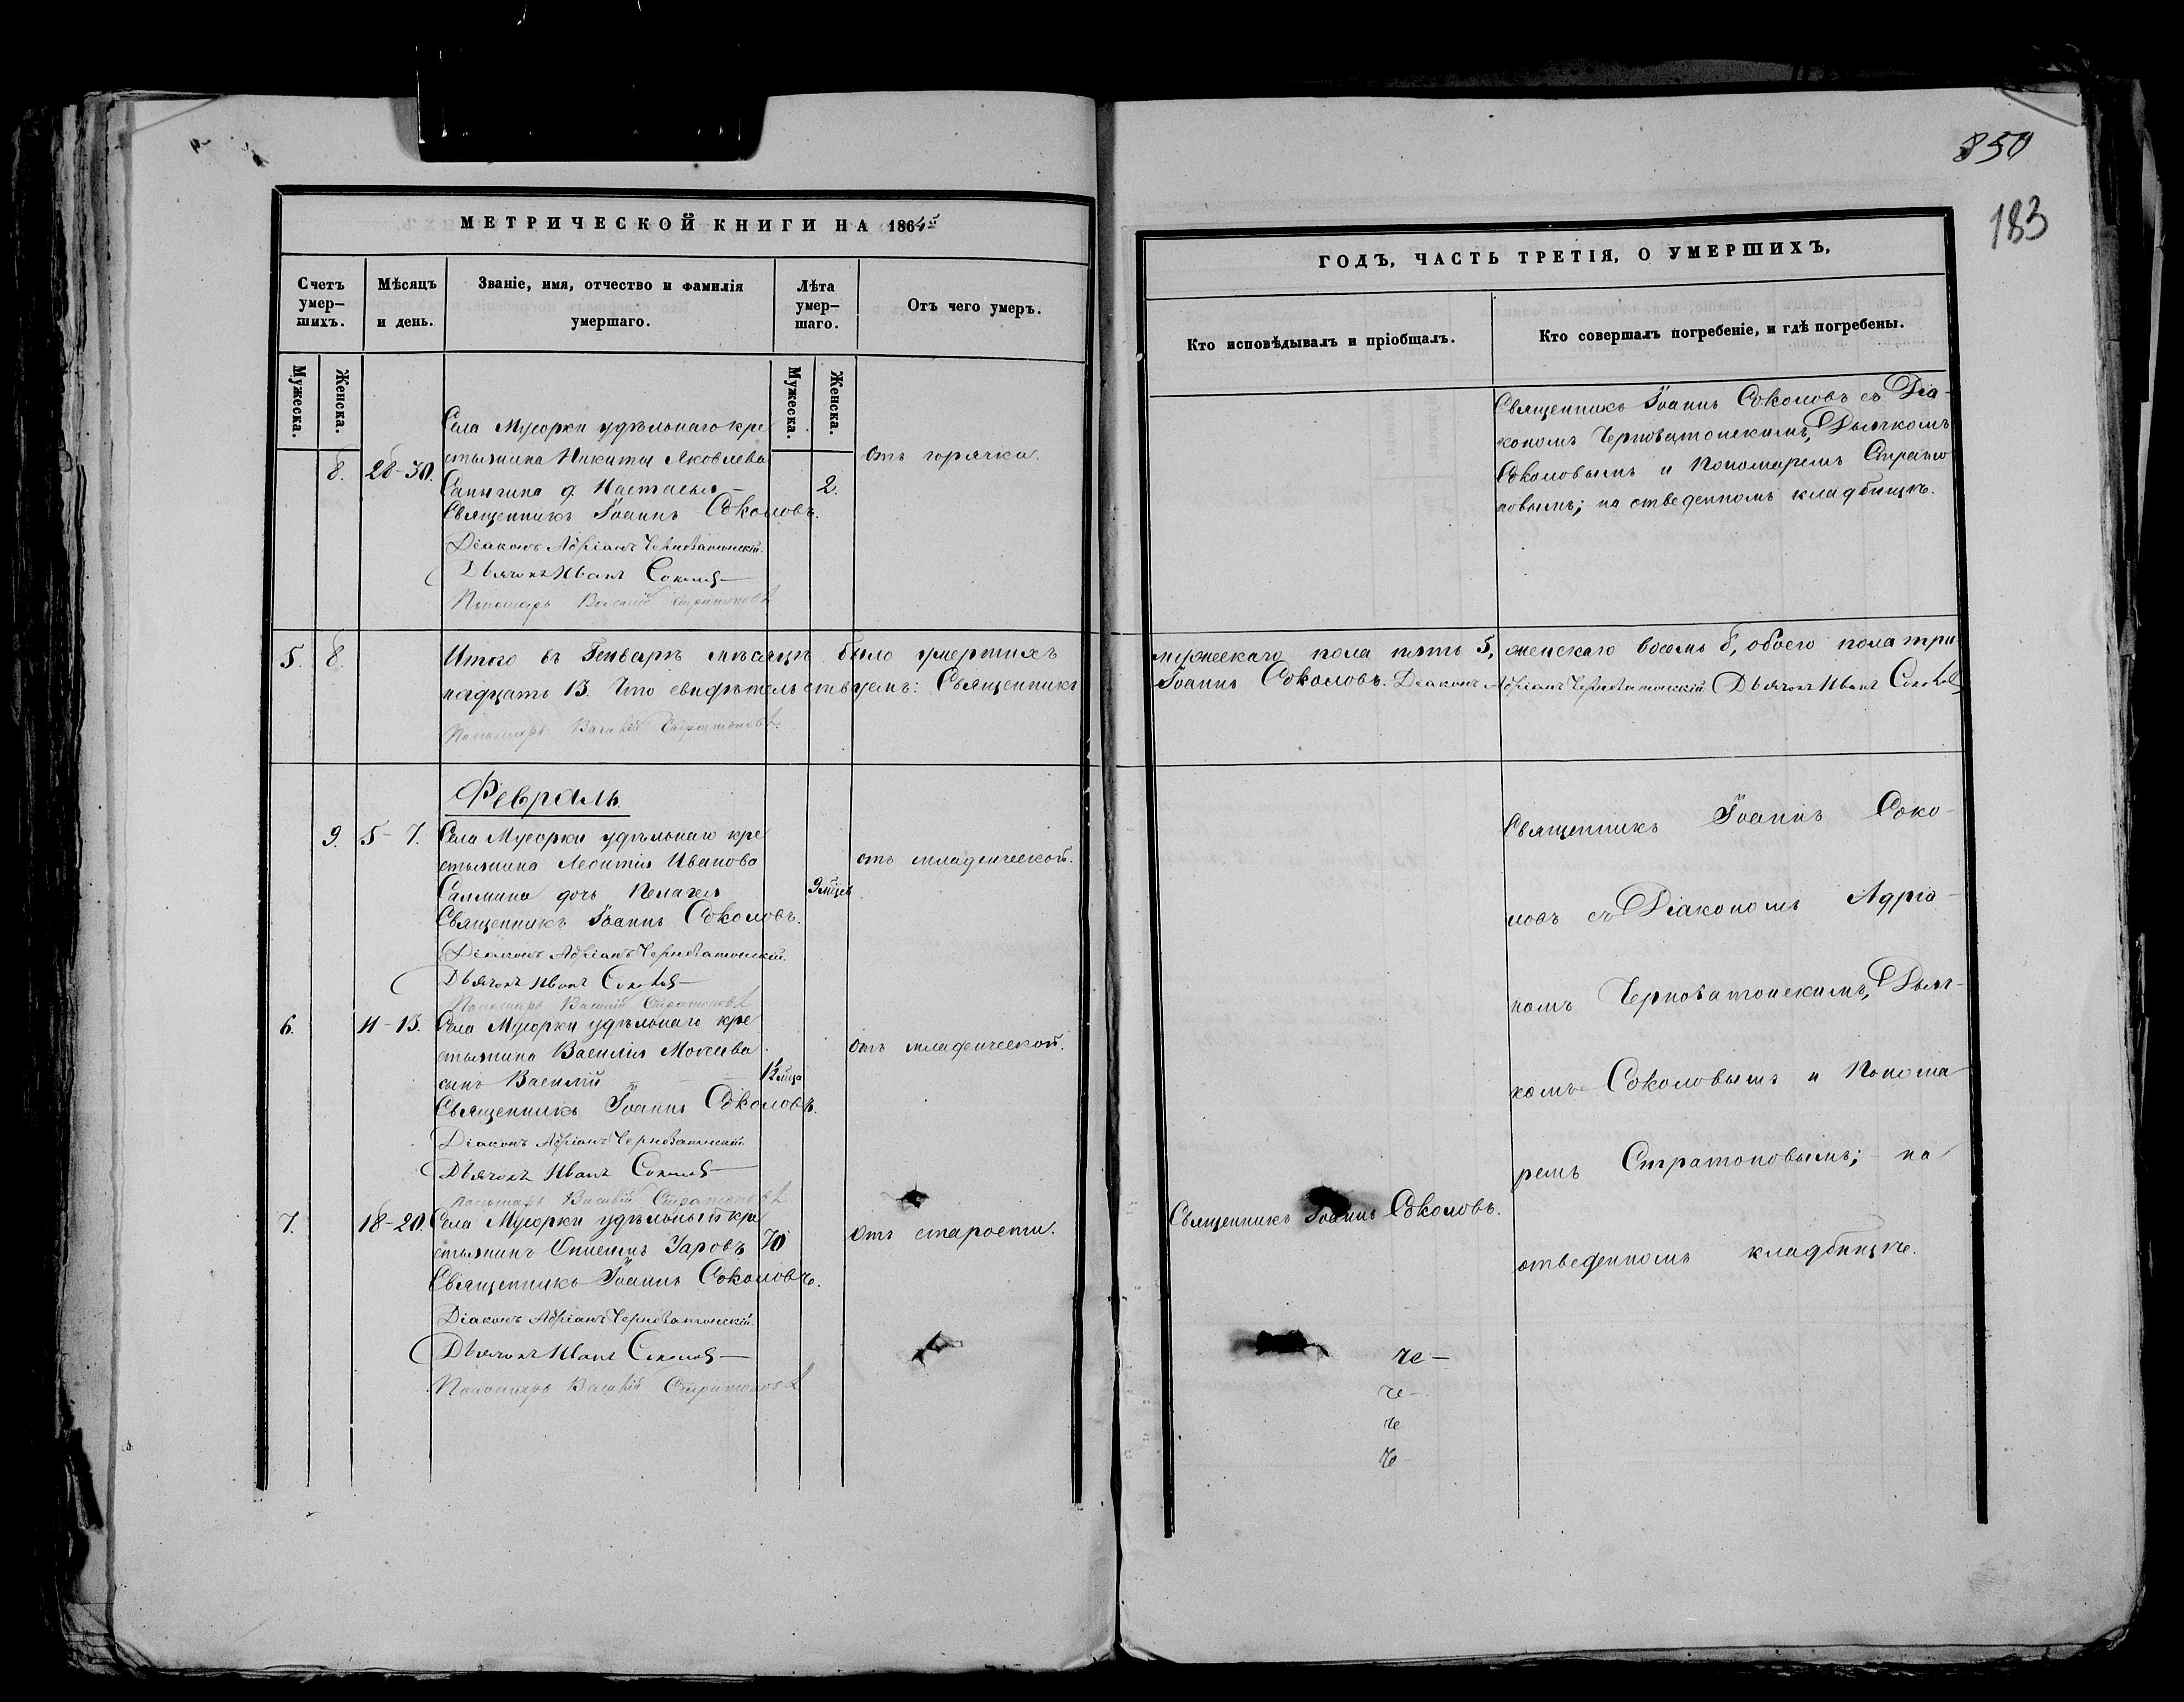 850
183
МЕТРИЧЕСКОЙ КНИГИ НА 1865й
ГОДЪ, ЧАСТЬ ТРЕТІЯ, О УМЕРШИХЪ,
Счетъ умер–шихъ.
Мѣсяцъ и день.
Званіе, имя, отчество и фамилія умершаго.
Лѣта умер–шаго.
Отъ чего умеръ.
Кто исповѣдывалъ и пріобщалъ.
Кто совершалъ погребеніе, и гдѣ погребены.
Мужеска.
Женска.
Мужеска.
Женска.
Села Мусорки удѣльнаго кре
8. 28–30. стьянина Никиты Яковлева
отъ горячки.
Сапигина д. Настасья – 2.
Священникъ Іоаннъ Соколовъ.
Діаконъ Адріанъ Черноватонскій.
Дьячокъ Иванъ Соколовъ
Пономарь Василій Стратоновъ
Священникъ Іоаннъ Соколовъ съ Діа-
кономъ Черноватонскимъ, Дьячкомъ
Соколовымъ и Пономаремъ Страто
новымъ; на отведенномъ кладбищѣ.
5. 8. Итого въ Генварѣ мѣсяцѣ было умершихъ
мужескаго пола пять 5, женскаго восемь 8, обоего пола три
надцать 13. Что свидѣтельствуемъ: Священникъ
Іоаннъ Соколовъ. Діаконъ Адріанъ Черноватонскій Дьячокъ Иванъ Соколовъ
Пономарь Василій Стратоновъ.
Февраль.
9. 5–7. Села Мусорки удѣльнаго кре
стьянина Леонтія Иванова
отъ младенческой.
Салмина дочь Пелагея 9 мѣцев
Священникъ Іоаннъ Соколовъ.
Діаконъ Адріанъ Черноватонскій.
Дьячокъ Иванъ Соколовъ
Пономарь Василій Стратоновъ
6. 11–13. Села Мусорки удѣльнаго кре
стьянина Василія Моисеева
отъ младенческой.
сынъ Василій
Священникъ Іоаннъ Соколовъ.
Діаконъ Адріанъ Черноватонскій
Дьячокъ Иванъ Соколовъ
Пономарь Василій Стратоновъ
7. 18–20. Села Мусорки удѣльный кре
стьянинъ Онисимъ Уаровъ 70
отъ старости.
Священникъ Іоаннъ Соколовъ.
Діаконъ Адріанъ Черноватонскій.
Дьячокъ Иванъ Соколовъ
Пономарь Василій Стратоновъ
Священникъ Іоаннъ Соколовъ.
Священникъ Іоаннъ Соко-
ловъ съ Діакономъ Адріа-
номъ Черноватонскимъ, Дьяч-
комъ Соколовымъ и Понома
ремъ Стратоновымъ; на
отведенномъ кладбищѣ.